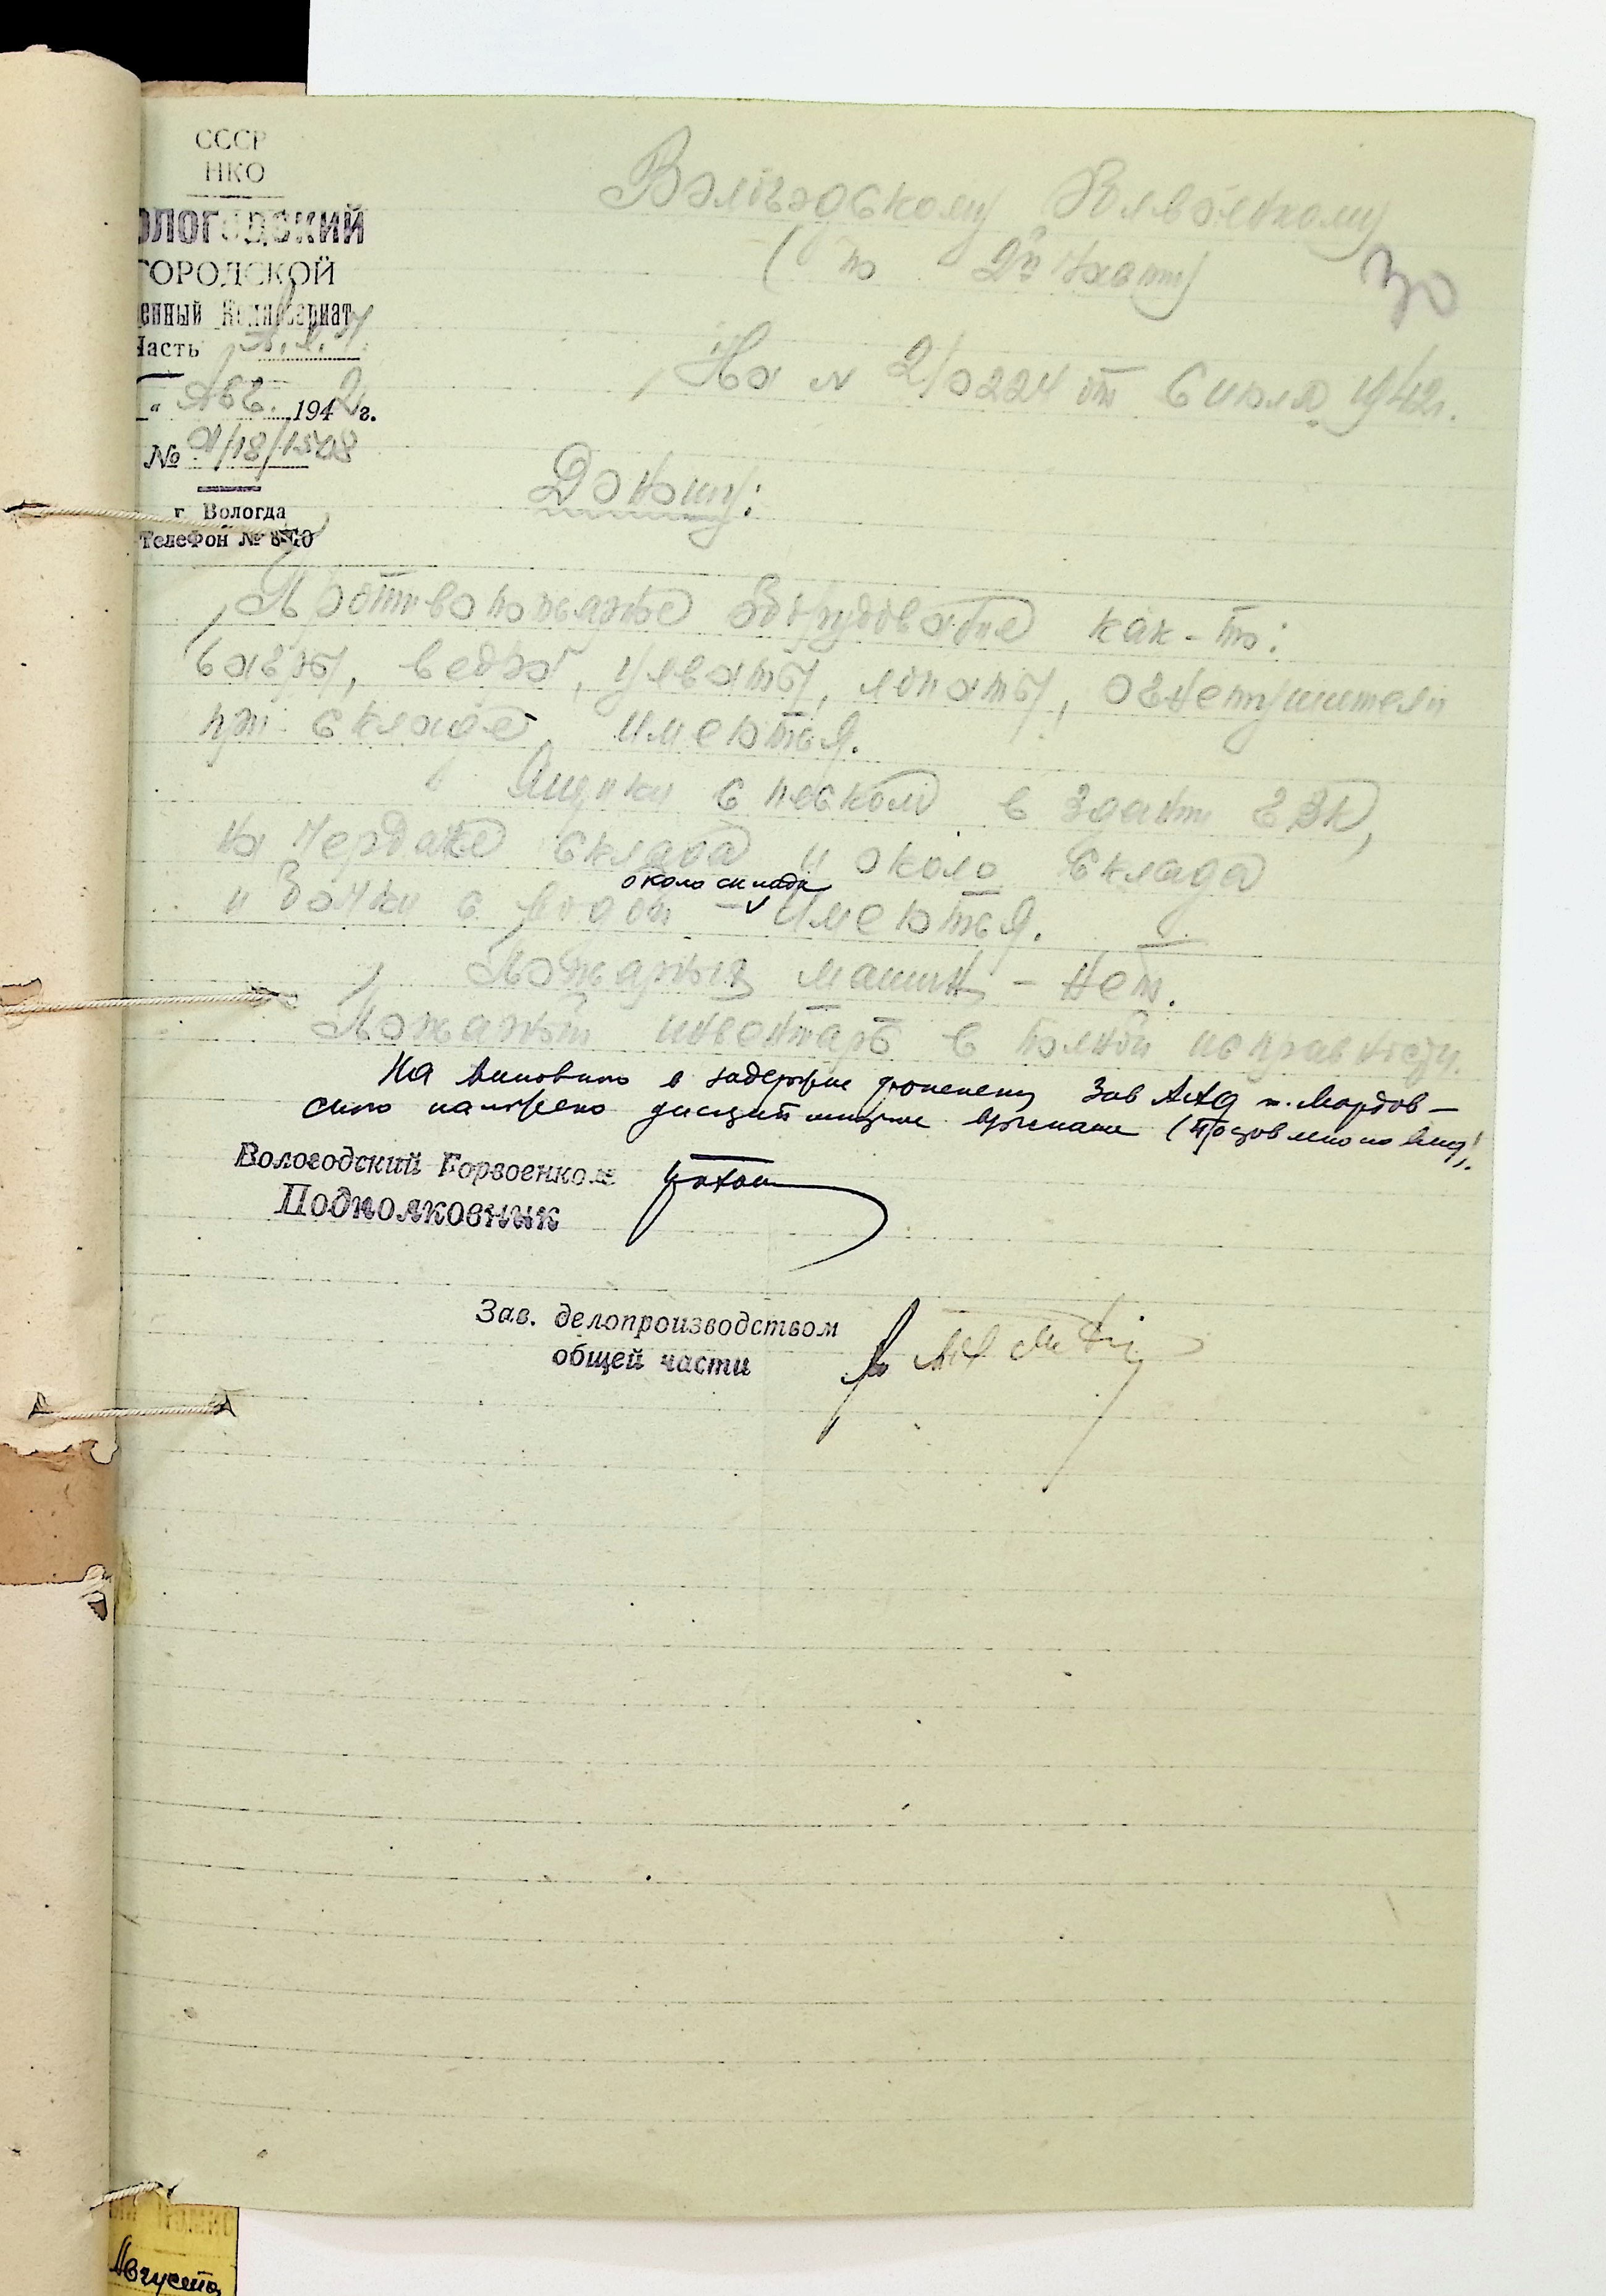 СССР
НКО
ОЛОГОДСКИЙ
ГОРОДСКОЙ
енный Комиссариат
Часть
" Авг. 1942 г.
№ 01/18/1508
г. Вологда
Телефон №
Вологодскому Облвоенкому
(по 2й части)
30
На № 2/0224 от 6 июля 1942г.
Доношу:
Противопожарное оборудование как-то:
багры, ведра, ушваты, лопаты, огнетушители
при складе имеются.
Ящики с песком в здании ГВК,
на чердаке склада и около склада
около склада
и бочки с водой – имеются.
Пожарных машин – нет.
Пожарный инвентарь в полной исправности.
На виновного в задержке Зав АХЧ т. Мордов-
ского наложено взыскание (поставлено на вид).
Вологодский Горвоенком
Подполковник
Зав. делопроизводством
общей части
Августа